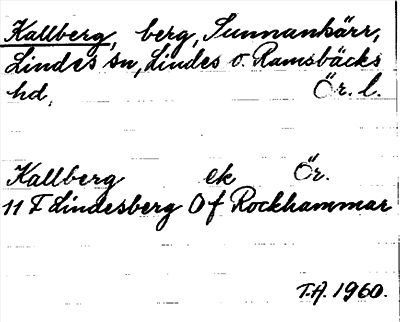 Kallberg, berg, Sunnankärr,
Lindes sn, Lindes o. Ramsbäcks
hd, Ör. l.
Kallberg ek Ör.
11 F Lindesberg 0 f Rockhammar
T.A. 1960.